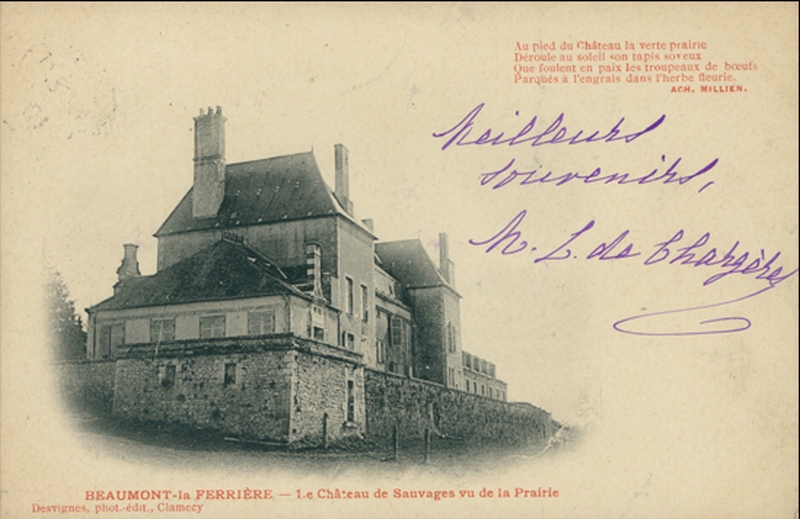 Au pied du Château la verte prairie
Déroule au soleil son tapis soyeux
Que foulent en paix les troupeaux de bœufs
Parqués à l'engrais dans l'herbe fleurie.
ACH. MILLIEN.
Meilleurs
souvenirs,
M. L. de Chargères
BEAUMONT-la FERRIÈRE — Le Château de Sauvages vu de la Prairie
Desvignes, phot.-édit., Clamecy